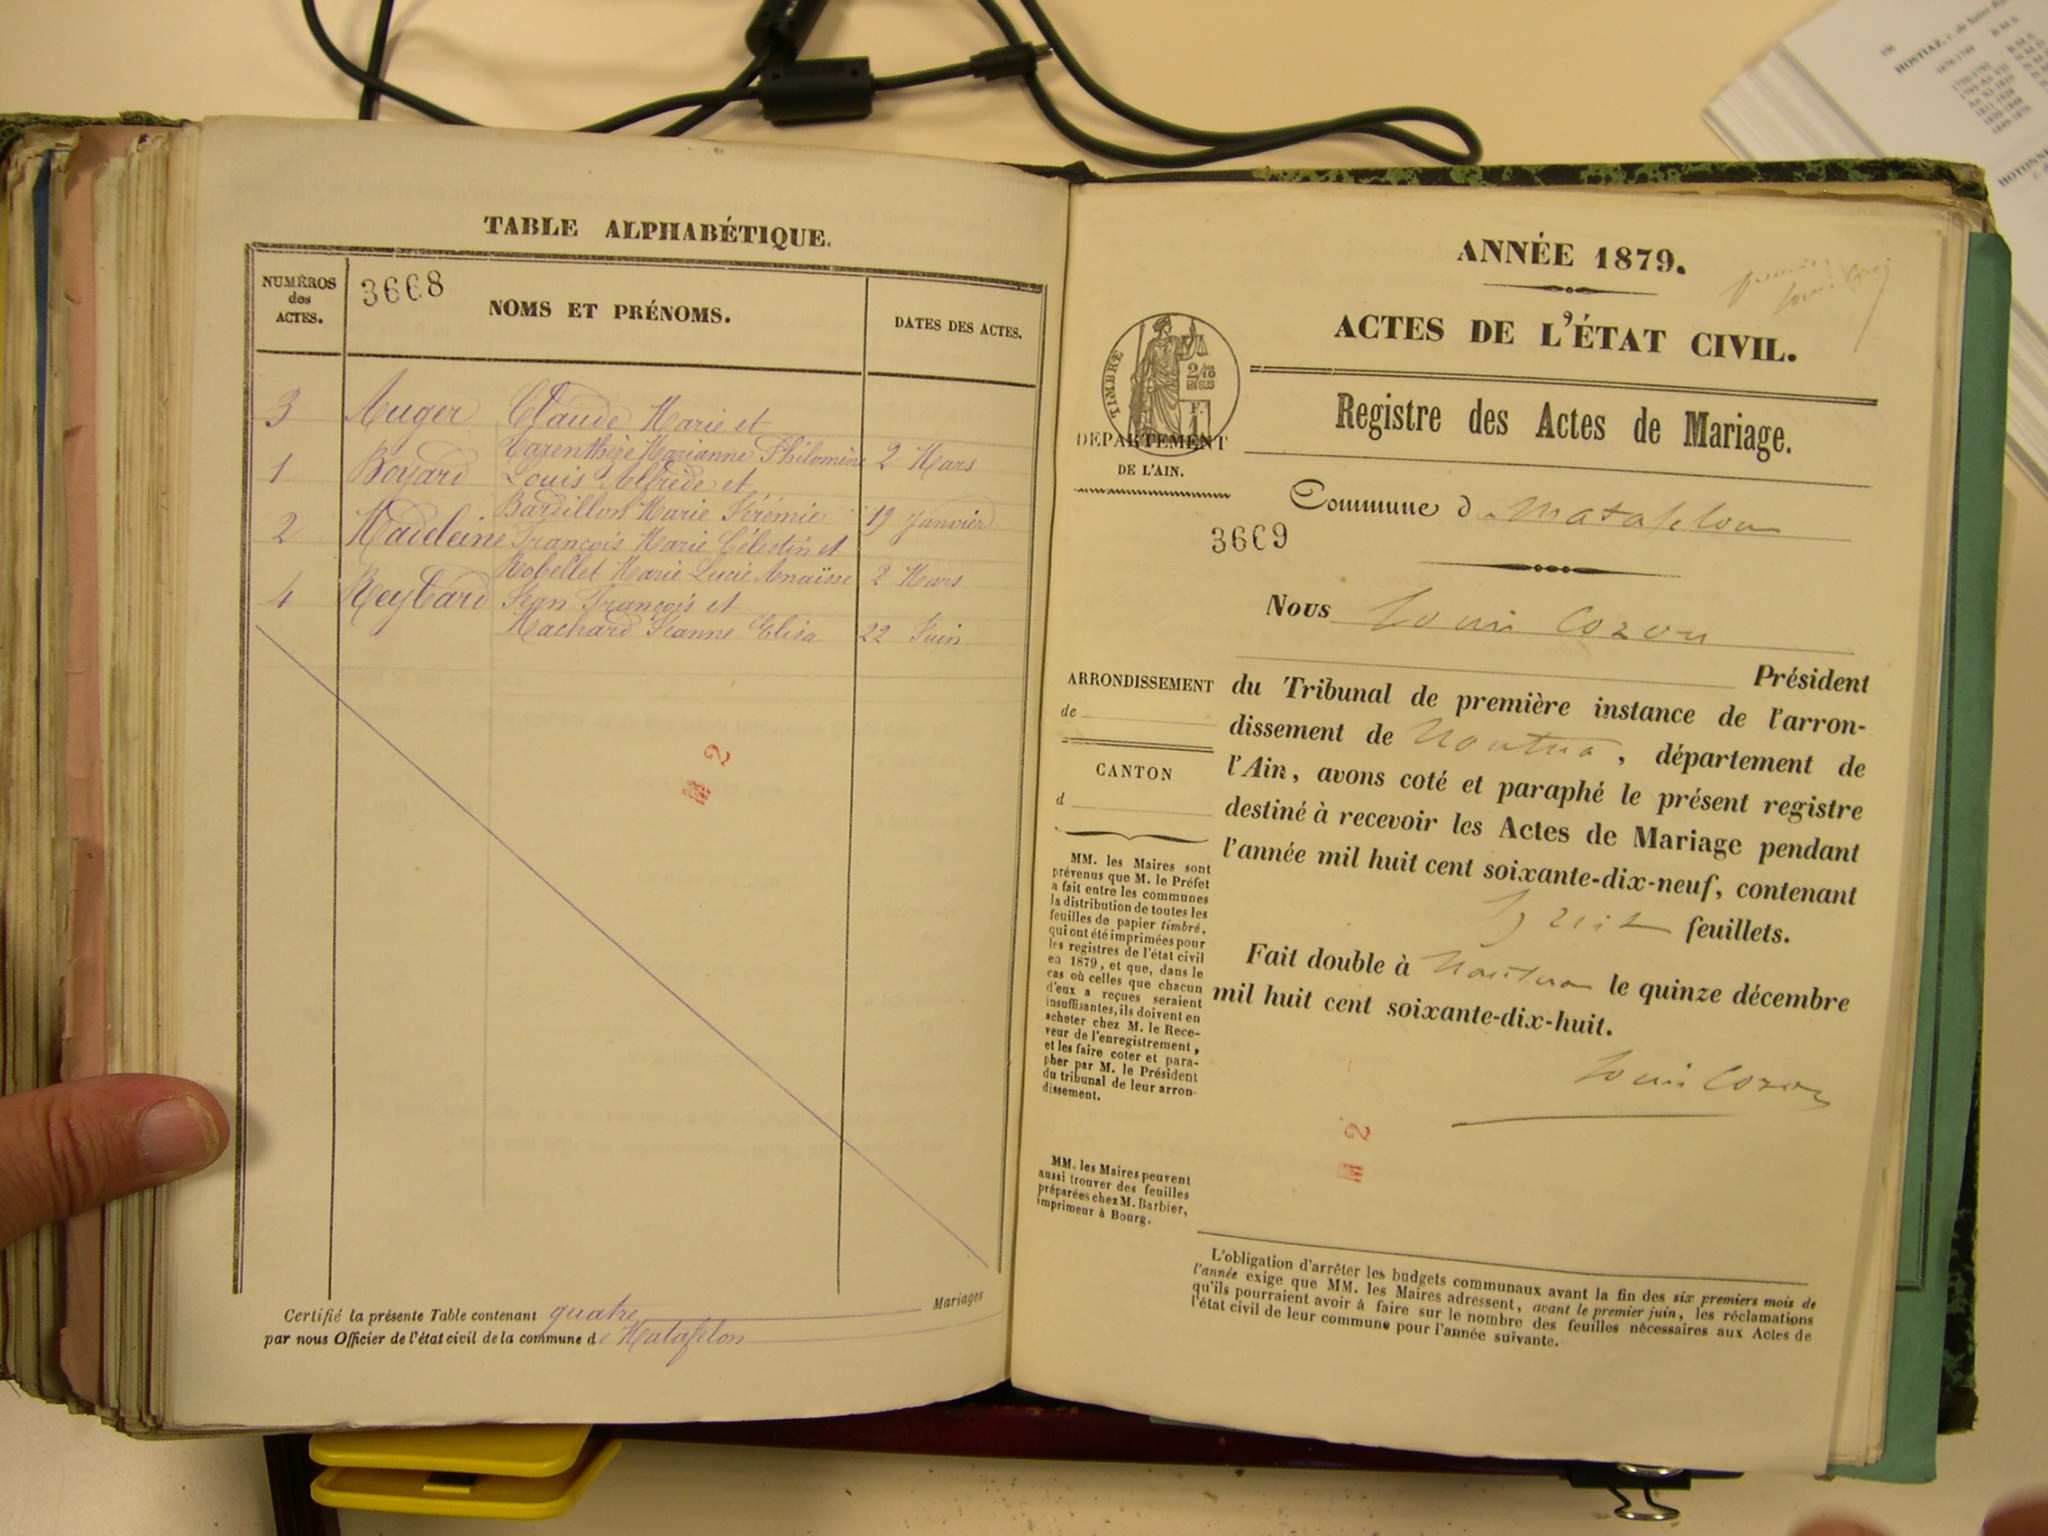 TABLE ALPHABÉTIQUE.
NUMÉROS
des
ACTES.
3668
NOMS ET PRÉNOMS.
DATES DES ACTES.
3 Auger Claude Marie et
Marianne Philomène 2 Mars
1 Boyard Louis Alfrède et
Bardillon Marie 19 Janvier
2 Madeleine François Marie Célestin et
Robellet Marie Lucie Anaïsse 2 Mars
4 Reybard Jean François et
Machard Jeanne Elisa 22 Juin
M 2
Certifié la présente Table contenant quatre Mariages
par nous Officier de l'état civil de la commune de Matafelon
ANNÉE 1879.
premier
Louis Cozon
ACTES DE L'ÉTAT CIVIL.
TIMBRE
Registre des Actes de Mariage.
DÉPARTEMENT
DE L'AIN.
Commune de Matafelon
3669
Nous Louis Cozon
Président
ARRONDISSEMENT
de
CANTON
d
du Tribunal de première instance de l'arron-
dissement de Nantua, département de
l'Ain, avons coté et paraphé le présent registre
destiné à recevoir les Actes de Mariage pendant
l'année mil huit cent soixante-dix-neuf, contenant
feuillets.
Fait double à Nantua le quinze décembre
mil huit cent soixante-dix-huit.
Louis Cozon
MM. les Maires sont
prévenus que M. le Préfet
a fait entre les communes
la distribution de toutes les
feuilles de papier timbré,
qui ont été imprimées pour
les registres de l'état civil
en 1879, et que, dans le
cas où celles que chacun
d'eux a reçues seraient
insuffisantes, ils doivent en
acheter chez M. le Rece-
veur de l'enregistrement,
et les faire coter et para-
pher par M. le Président
du tribunal de leur arron-
dissement.
M 2
MM. les Maires peuvent
aussi trouver des feuilles
préparées chez M. Barbier,
imprimeur à Bourg.
L'obligation d'arrêter les budgets communaux avant la fin des six premiers mois de
l'année exige que MM. les Maires adressent, avant le premier juin, les réclamations
qu'ils pourraient avoir à faire sur le nombre des feuilles nécessaires aux Actes de
l'état civil de leur commune pour l'année suivante.